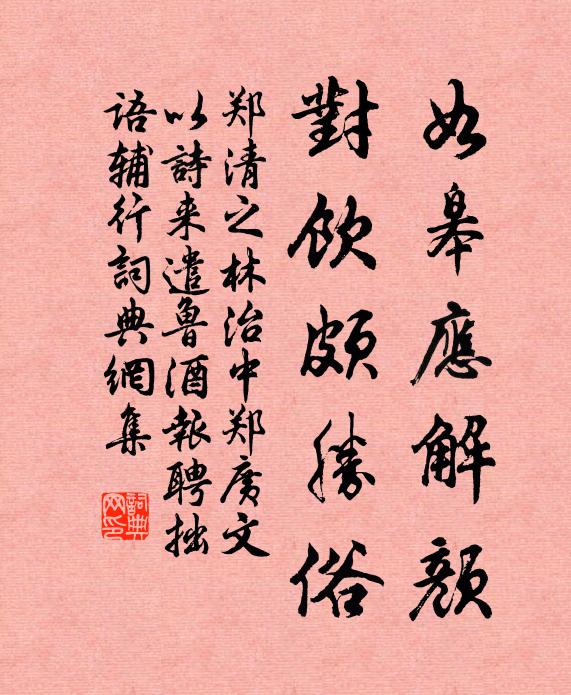 如皋應解顔
對飲頗勝俗
郑清之林治中郑廣文
以詩来遣魯酒報聘拙
语辅行詞典網集
詞典网印